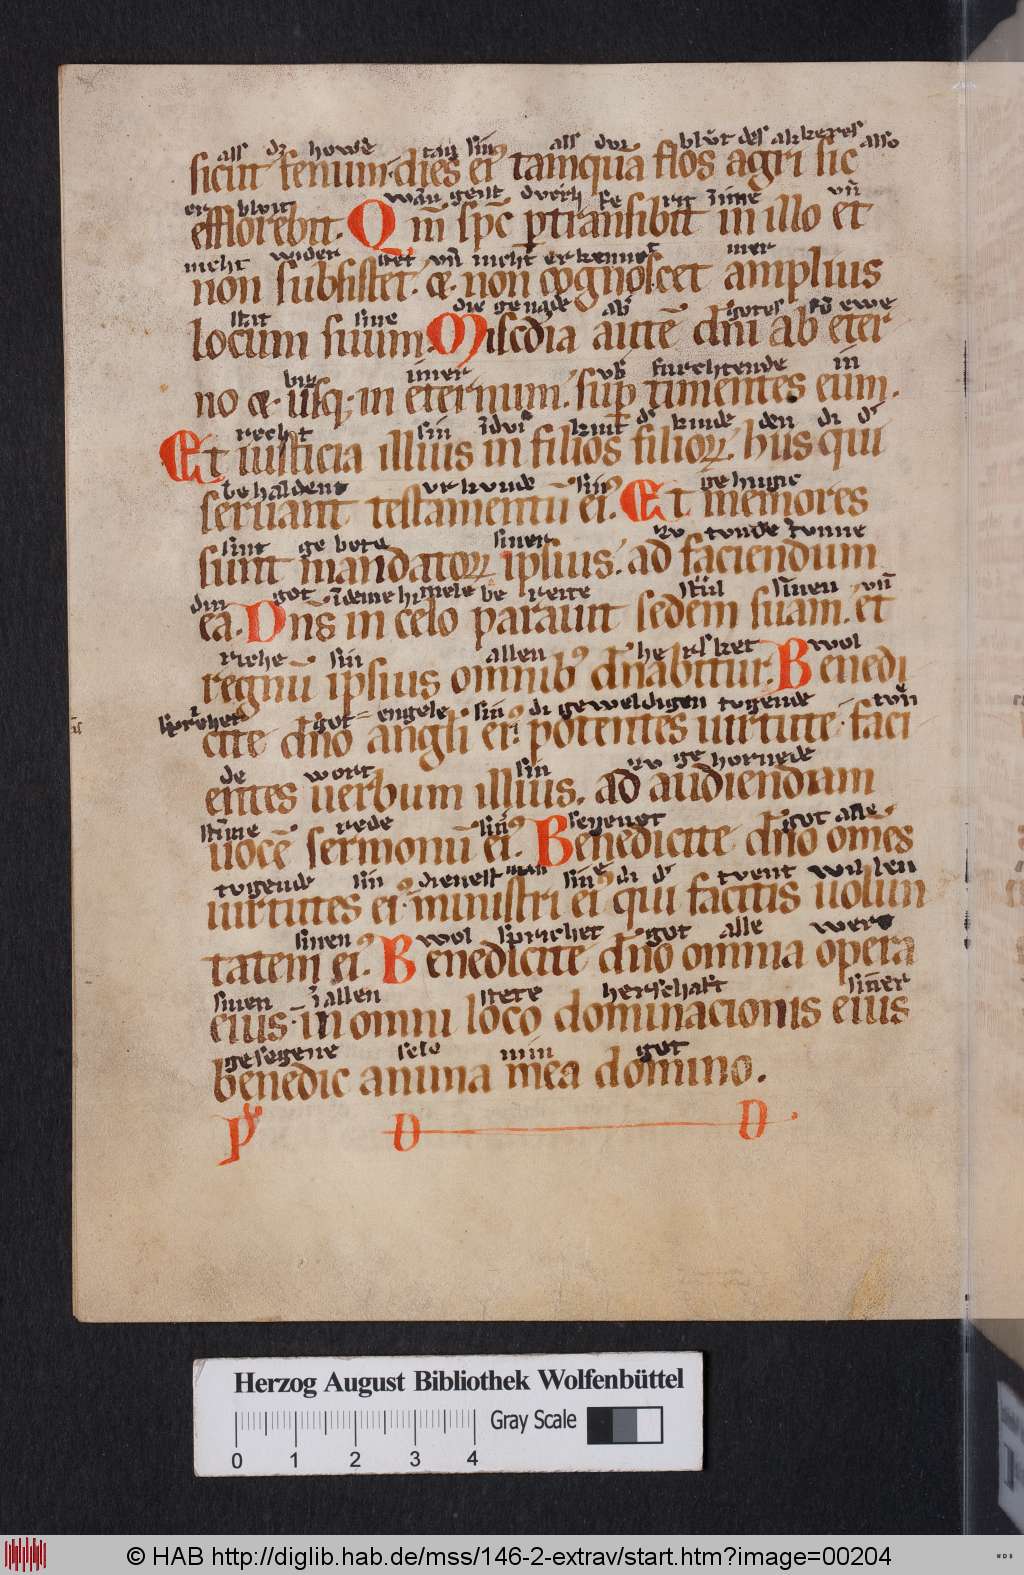 als dz howe tag sin9 als der blůt des akkeres also
sicut fenum. dies ei9 tamquā flos agri sic
er bluit wāt geist dvrch fe rit ī ime vn̄
efflorebit. Qm̄ sp̄c ptransibit in illo et
nicht wider stet vn̄ nicht erkennet mer
non subsistet. & non cognoscet amplius
stat sine die genade ab gotes fō ewe
locum suum. Misc̄dia autē dn̄i ab eter
biz imer vb furchtende in
no &. usq; in eternum. sup timentes eum.
recht sin kint kinde den di di
Et iusticia illius in filios filioꝝ. hiis qui
behaldent vrkunde sin9 gehugic
seruant testamentū ei9. Et memores
sint ge bote sinen zv tvnde
sunt mandatoꝝ ipsius. ad faciendum
din got ī deme himele be reite stůl sinen vn̄
ea. Dn̄s in celo parauit sedem suam. et
riche sin allen hersket wol
regnū ipsius omnib9 dn̄abitur. Benedi
sprechet got engele sin9 di geweldigen tvgende tvn
cite dn̄o angli ei9. potentes uirtute. faci
de wort sin zv ge horende
entes uerbum illius. ad audiendam
stīme rede sin9 segenet got alle
uocē sermonū ei9. Benedicite dn̄o om̄es
tvgende sin9 dienestman sine di di tvent willen
uirtutes ei9. ministri ei9 qui facitis uolun
sinen9 wol sprichet got alle werc
tatem ei9. Benedicite dn̄o omnia opera
sinen ī allen stete herschaft sin̄er
eius. in omni loco dominacionis eius
gesegene sele min got
benedic anima mea domino.
D D
Herzog August Bibliothek Wolfenbüttel
Gray Scale
0 1 2 3 4
© HAB http://diglib.hab.de/mss/146-2-extrav/start.htm?image=00204